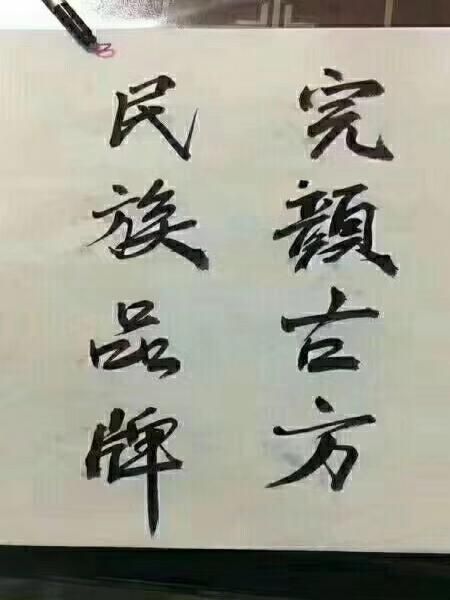 完顔古方
民族品牌